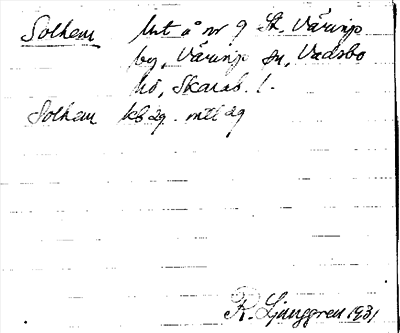 Solhem Uut å nr 9 St. Väringe
by, Väringe sn, Vadsbo
hd, Skarab. l.
Solhem kb 29. mtl 29
R. Ljunggren 1931